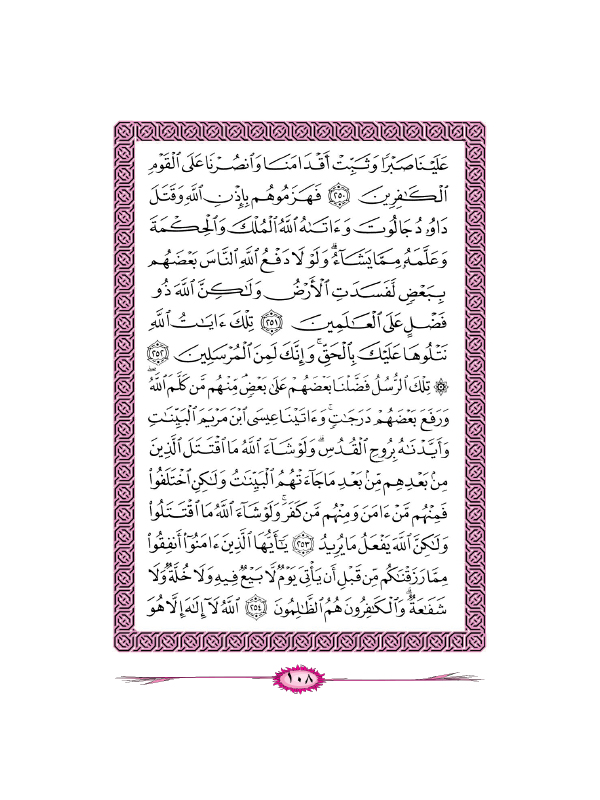 عَلَيۡنَا صَبۡرٗا وَثَبِّتۡ أَقۡدَامَنَا وَٱنصُرۡنَا عَلَى ٱلۡقَوۡمِ
ٱلۡكَٰفِرِينَ ٢٥٠ فَهَزَمُوهُم بِإِذۡنِ ٱللَّهِ وَقَتَلَ
دَاوُۥدُ جَالُوتَ وَءَاتَىٰهُ ٱللَّهُ ٱلۡمُلۡكَ وَٱلۡحِكۡمَةَ
وَعَلَّمَهُۥ مِمَّا يَشَآءُۗ وَلَوۡلَا دَفۡعُ ٱللَّهِ ٱلنَّاسَ بَعۡضَهُم
بِبَعۡضٖ لَّفَسَدَتِ ٱلۡأَرۡضُ وَلَٰكِنَّ ٱللَّهَ ذُو
فَضۡلٍ عَلَى ٱلۡعَٰلَمِينَ ٢٥١ تِلۡكَ ءَايَٰتُ ٱللَّهِ
نَتۡلُوهَا عَلَيۡكَ بِٱلۡحَقِّۚ وَإِنَّكَ لَمِنَ ٱلۡمُرۡسَلِينَ ٢٥٢
۞ تِلۡكَ ٱلرُّسُلُ فَضَّلۡنَا بَعۡضَهُمۡ عَلَىٰ بَعۡضٖۘ مِّنۡهُم مَّن كَلَّمَ ٱللَّهُۖ
وَرَفَعَ بَعۡضَهُمۡ دَرَجَٰتٖۚ وَءَاتَيۡنَا عِيسَى ٱبۡنَ مَرۡيَمَ ٱلۡبَيِّنَٰتِ
وَأَيَّدۡنَٰهُ بِرُوحِ ٱلۡقُدُسِۗ وَلَوۡ شَآءَ ٱللَّهُ مَا ٱقۡتَتَلَ ٱلَّذِينَ
مِنۢ بَعۡدِهِم مِّنۢ بَعۡدِ مَا جَآءَتۡهُمُ ٱلۡبَيِّنَٰتُ وَلَٰكِنِ ٱخۡتَلَفُواْ
فَمِنۡهُم مَّنۡ ءَامَنَ وَمِنۡهُم مَّن كَفَرَۚ وَلَوۡ شَآءَ ٱللَّهُ مَا ٱقۡتَتَلُواْ
وَلَٰكِنَّ ٱللَّهَ يَفۡعَلُ مَا يُرِيدُ ٢٥٣ يَٰٓأَيُّهَا ٱلَّذِينَ ءَامَنُوٓاْ أَنفِقُواْ
مِمَّا رَزَقۡنَٰكُم مِّن قَبۡلِ أَن يَأۡتِيَ يَوۡمٞ لَّا بَيۡعٞ فِيهِ وَلَا خُلَّةٞ وَلَا
شَفَٰعَةٞۗ وَٱلۡكَٰفِرُونَ هُمُ ٱلظَّٰلِمُونَ ٢٥٤ ٱللَّهُ لَآ إِلَٰهَ إِلَّا هُوَ
١٠٨